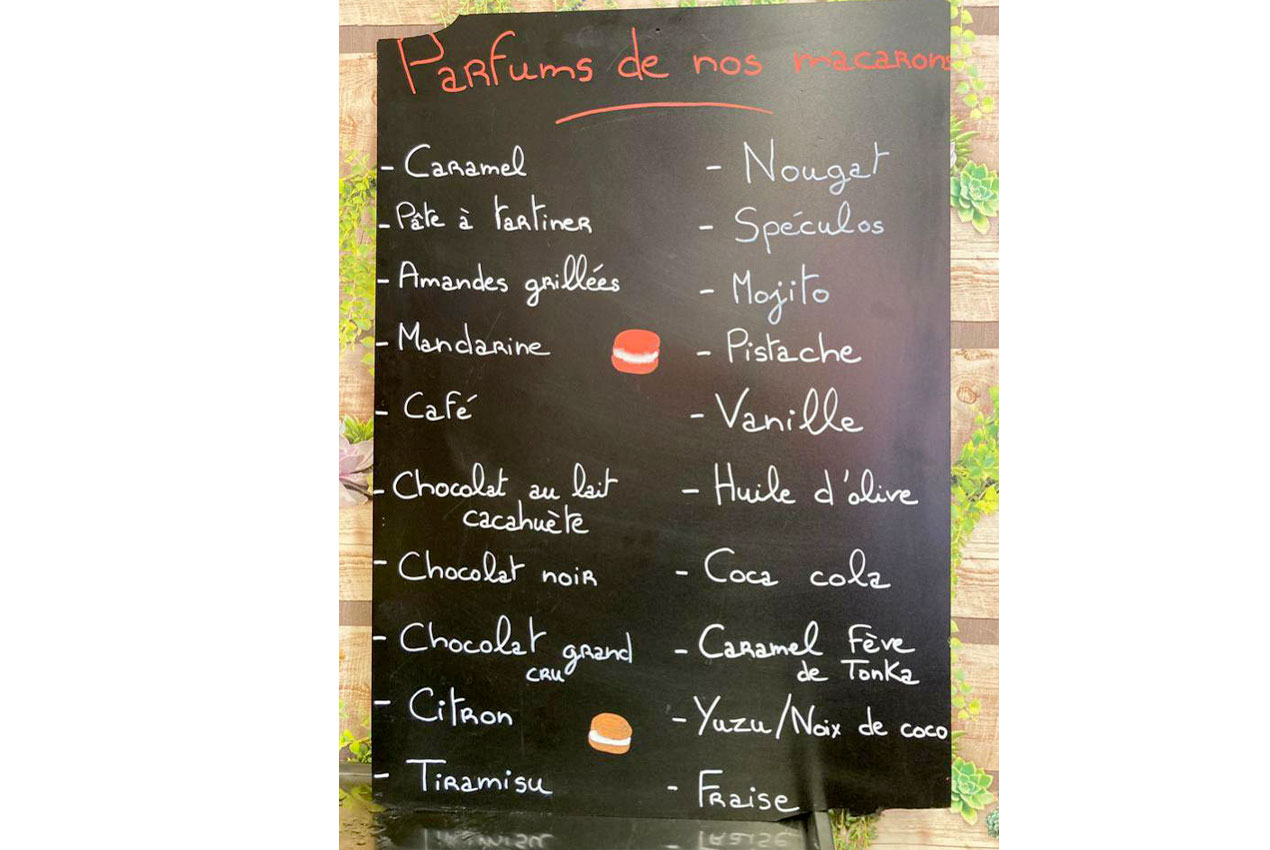 Parfums de nos macarons
- Caramel
- Pâte à tartiner
- Amandes grillées
- Mandarine
- Café
- Chocolat au lait
cacahuète
- Chocolat noir
- Chocolat grand
cru
- Citron
- Tiramisu
- Nougat
- Spéculos
- Mojito
- Pistache
- Vanille
- Huile d'olive
- Coca cola
- Caramel Fève
de Tonka
- Yuzu/Noix de coco
- Fraise